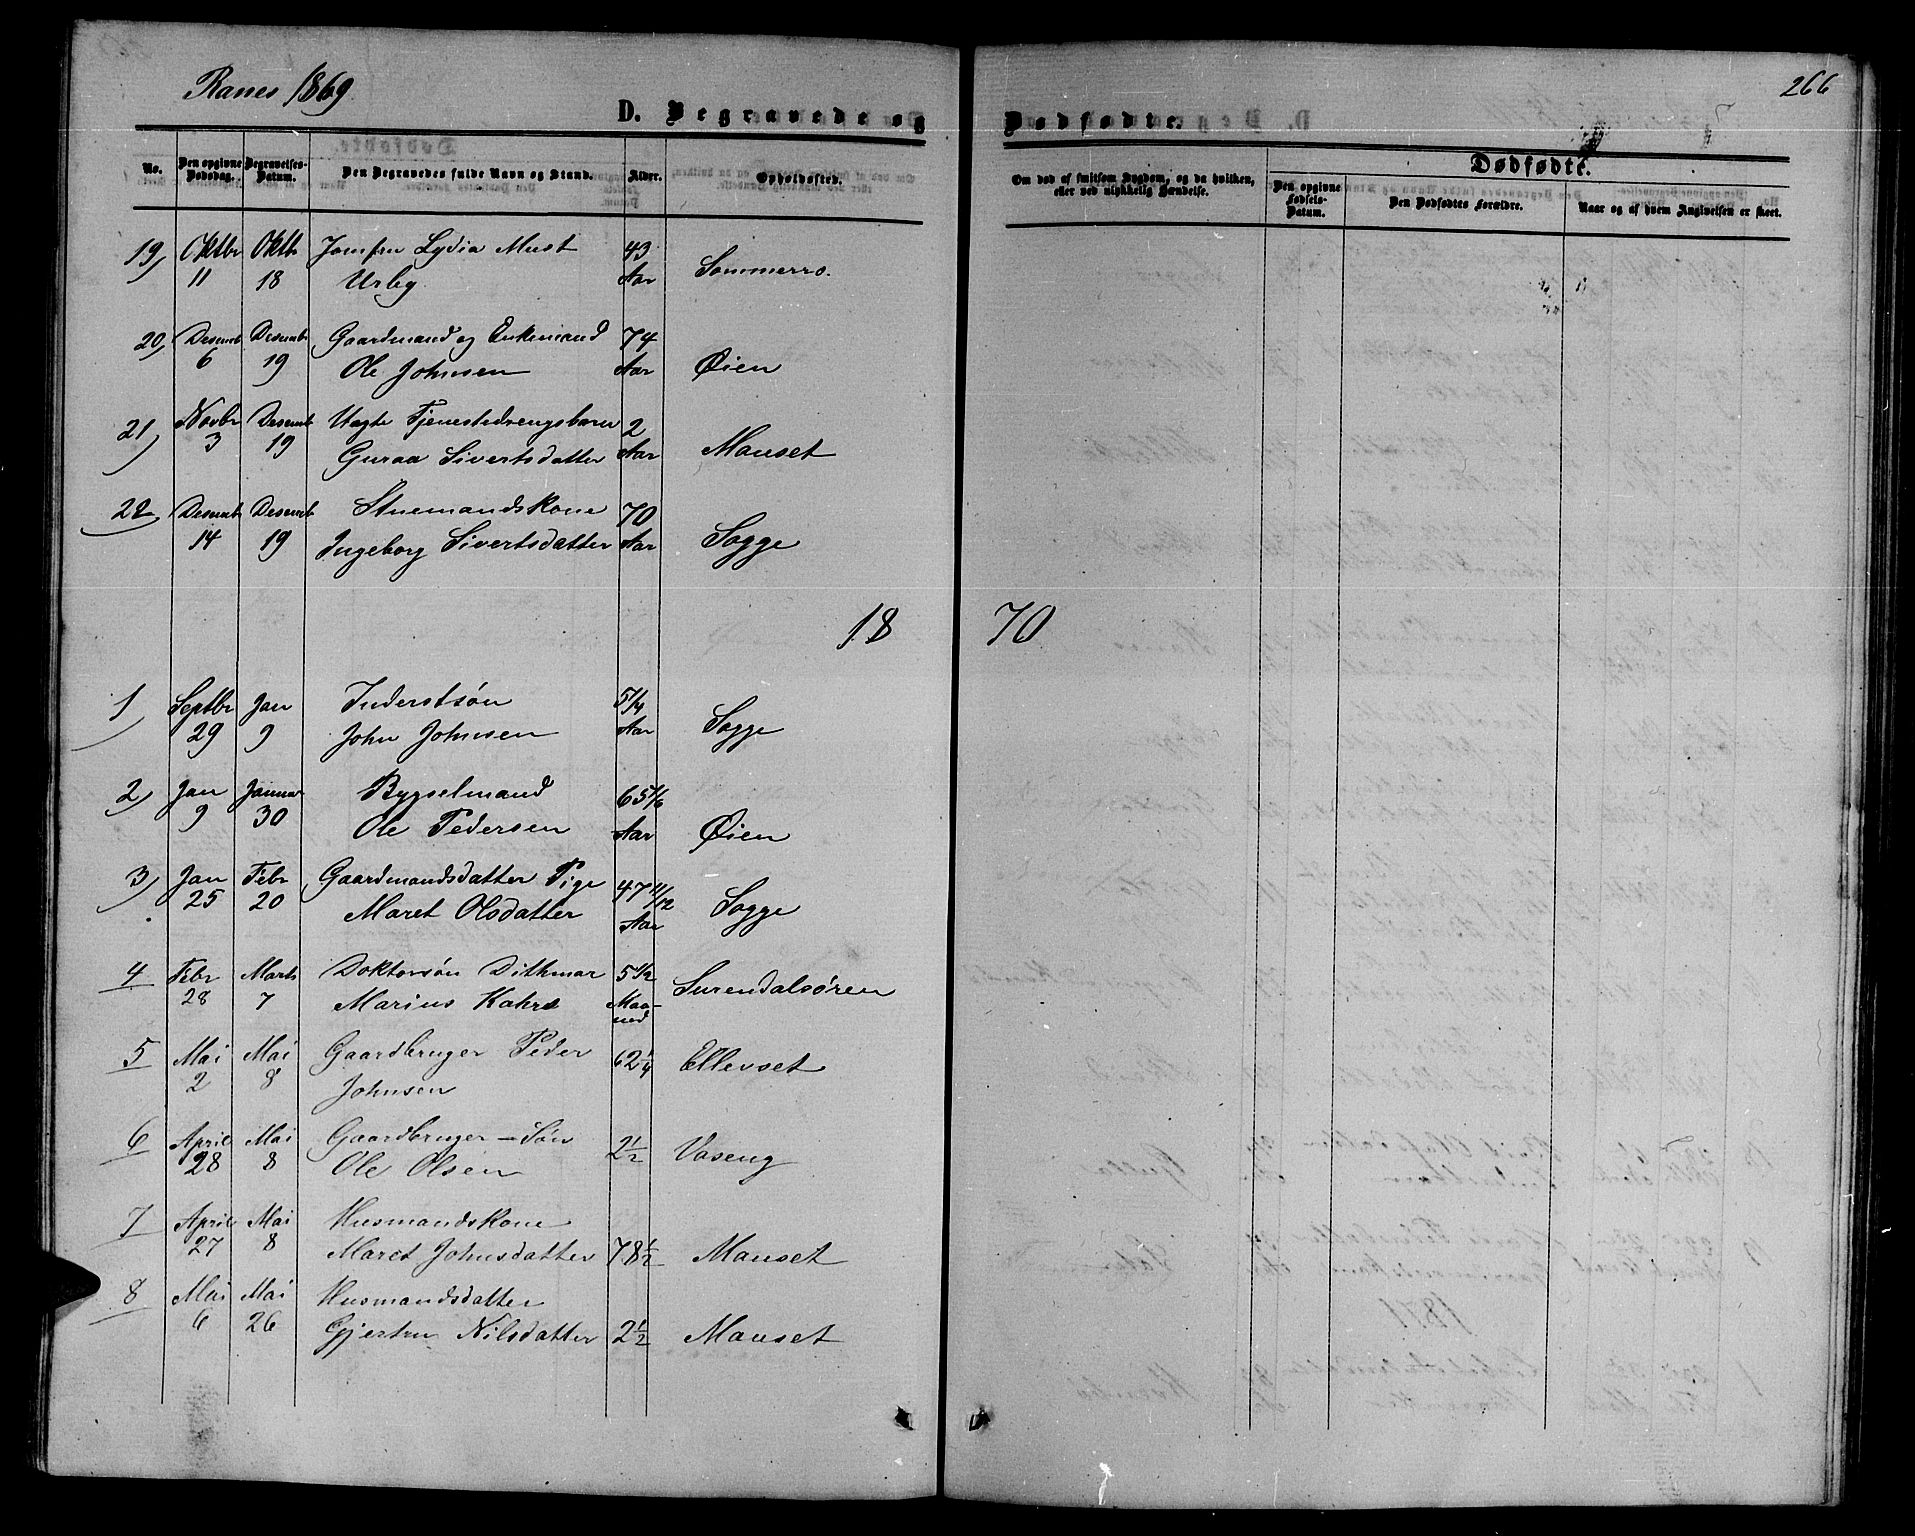 Ranes 1869
266
D. Begravede og Dødfødte.
No.
Den opgivne Dødsdag.
Begravelses-Datum.
Den Begravedes fulde Navn og Stand.
Alder.
Opholdssted.
Om død af smitsom Sygdom, og da hvilken, eller ved ulykkelig Hændelse.
Dødfødte.
Den opgivne Fødsels-Datum.
Den Dødfødtes Forældre.
Naar og af hvem Angivelsen er skeet.
19) Oktbr Oktb Jomfru Lydia Must 43
11 18 Urby Aar Sommerro.
20) Desemb Desemb Gaardmand og Enkemand 74
6 19 Ole Johnsen Aar Øien
21) Novbr Desemb Uægte Tjenestedrengsbarn 2
3 19 Guraa Sivertsdatter Aar Mauset
22 Desemb Desemb Stuemandskone 70
14 19 Ingeborg Sivertsdatter Aar Sogge
18 70
1) Septbr Jan Inderstsøn 5 1/4
29 9 John Johnsen Aar Sogge
2) Jan Januar Bygselmand 65 1/6
9 30 Ole Pedersen Aar Øien
3) Jan Febr Gaardmandsdatter Pige 47 11/12
25 20 Maret Olsdatter Aar Sogge
4 Febr Marts Doktorsøn Dithmar 5 1/2
28 7 Marius Kahrs Maaned Surendalsøren
5 Mai Mai Gaardbruger Peder 62 1/4 Ellevset
2 8 Johnsen
6 April Mai Gaardbruger-Søn 2 1/2 Vaseng
28 8 Ole Olsen
7 April Mai Husmandskone
27 8 Maret Johnsdatter 78 1/2 Mauset
8 Mai Mai Husmandsdatter
6 26 Gjertru Nilsdatter 2 1/2 Mauset